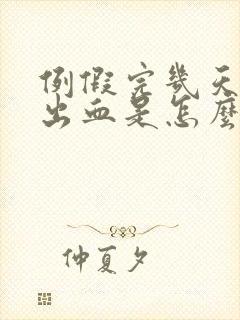 例假完幾天
出血是怎麼
仲夏夕